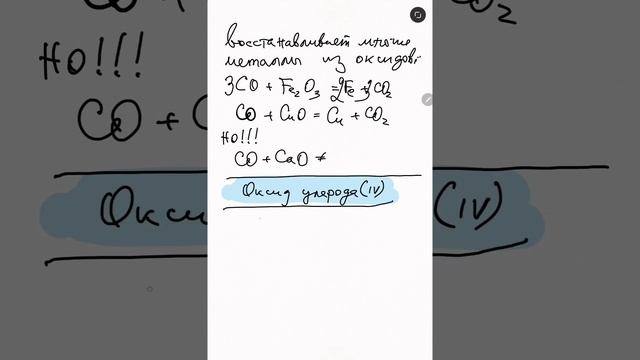 восстанавливает многие
металлы из оксидов:
3CO + Fe₂O₃ = 2Fe + 3CO₂
CO + CuO = Cu + CO₂
НО!!!
CO + CaO ≠
Оксид углерода (IV)